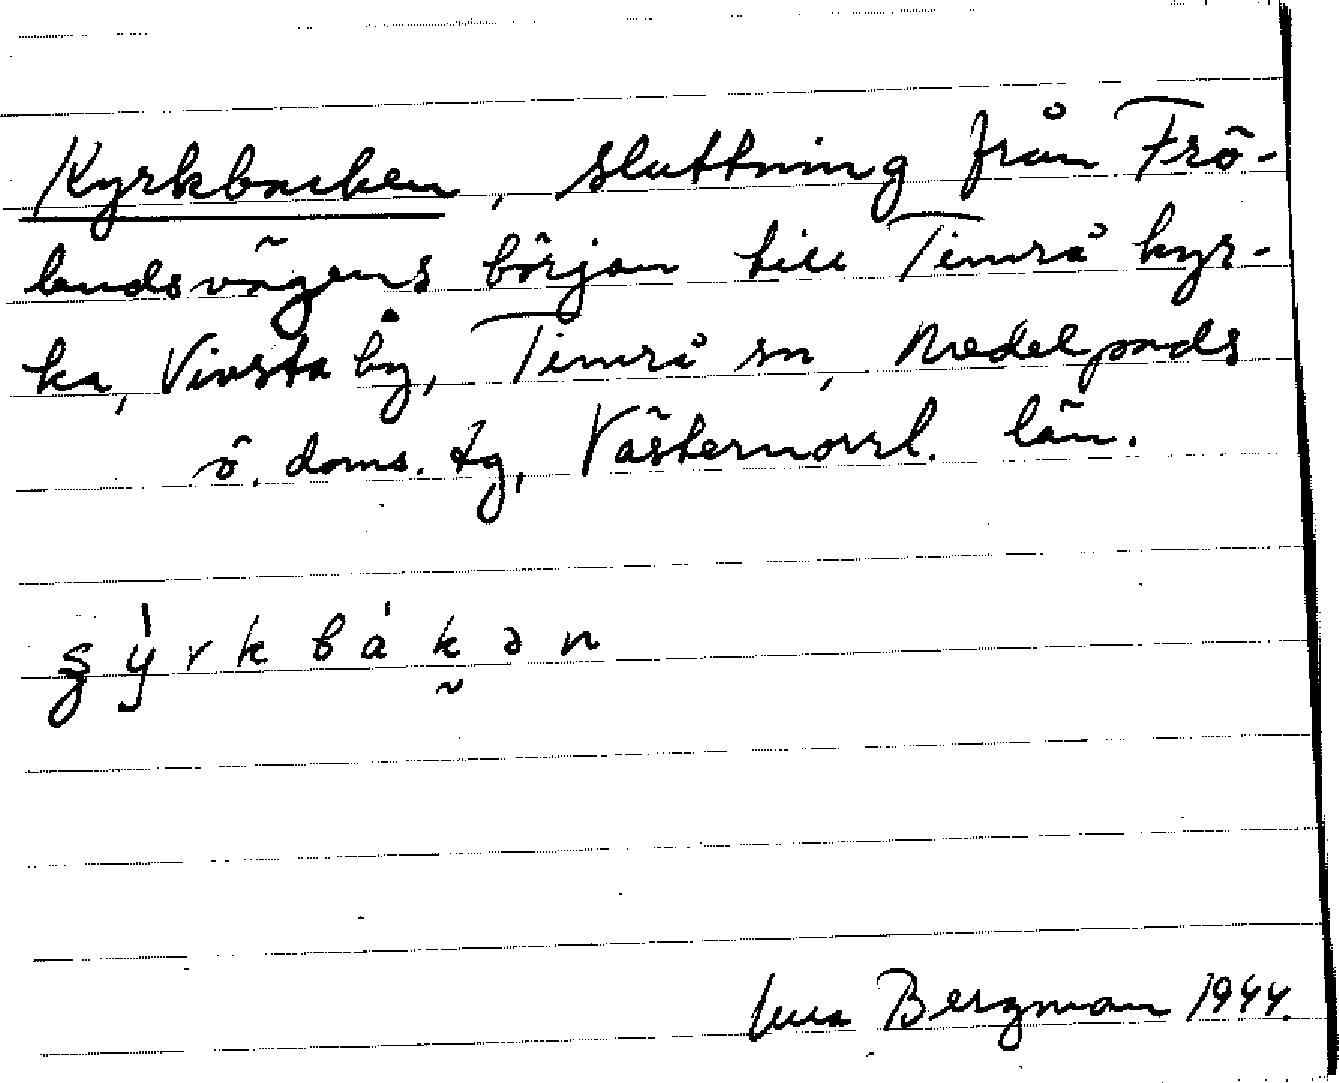 Kyrkbacken, sluttning från Frö-
landsvägens början till Timrå kyr-
ka, Vivsta by, Timrå sn, Medelpads
ö. doms. tg, Västernorrl. län.
Bergman 1944.